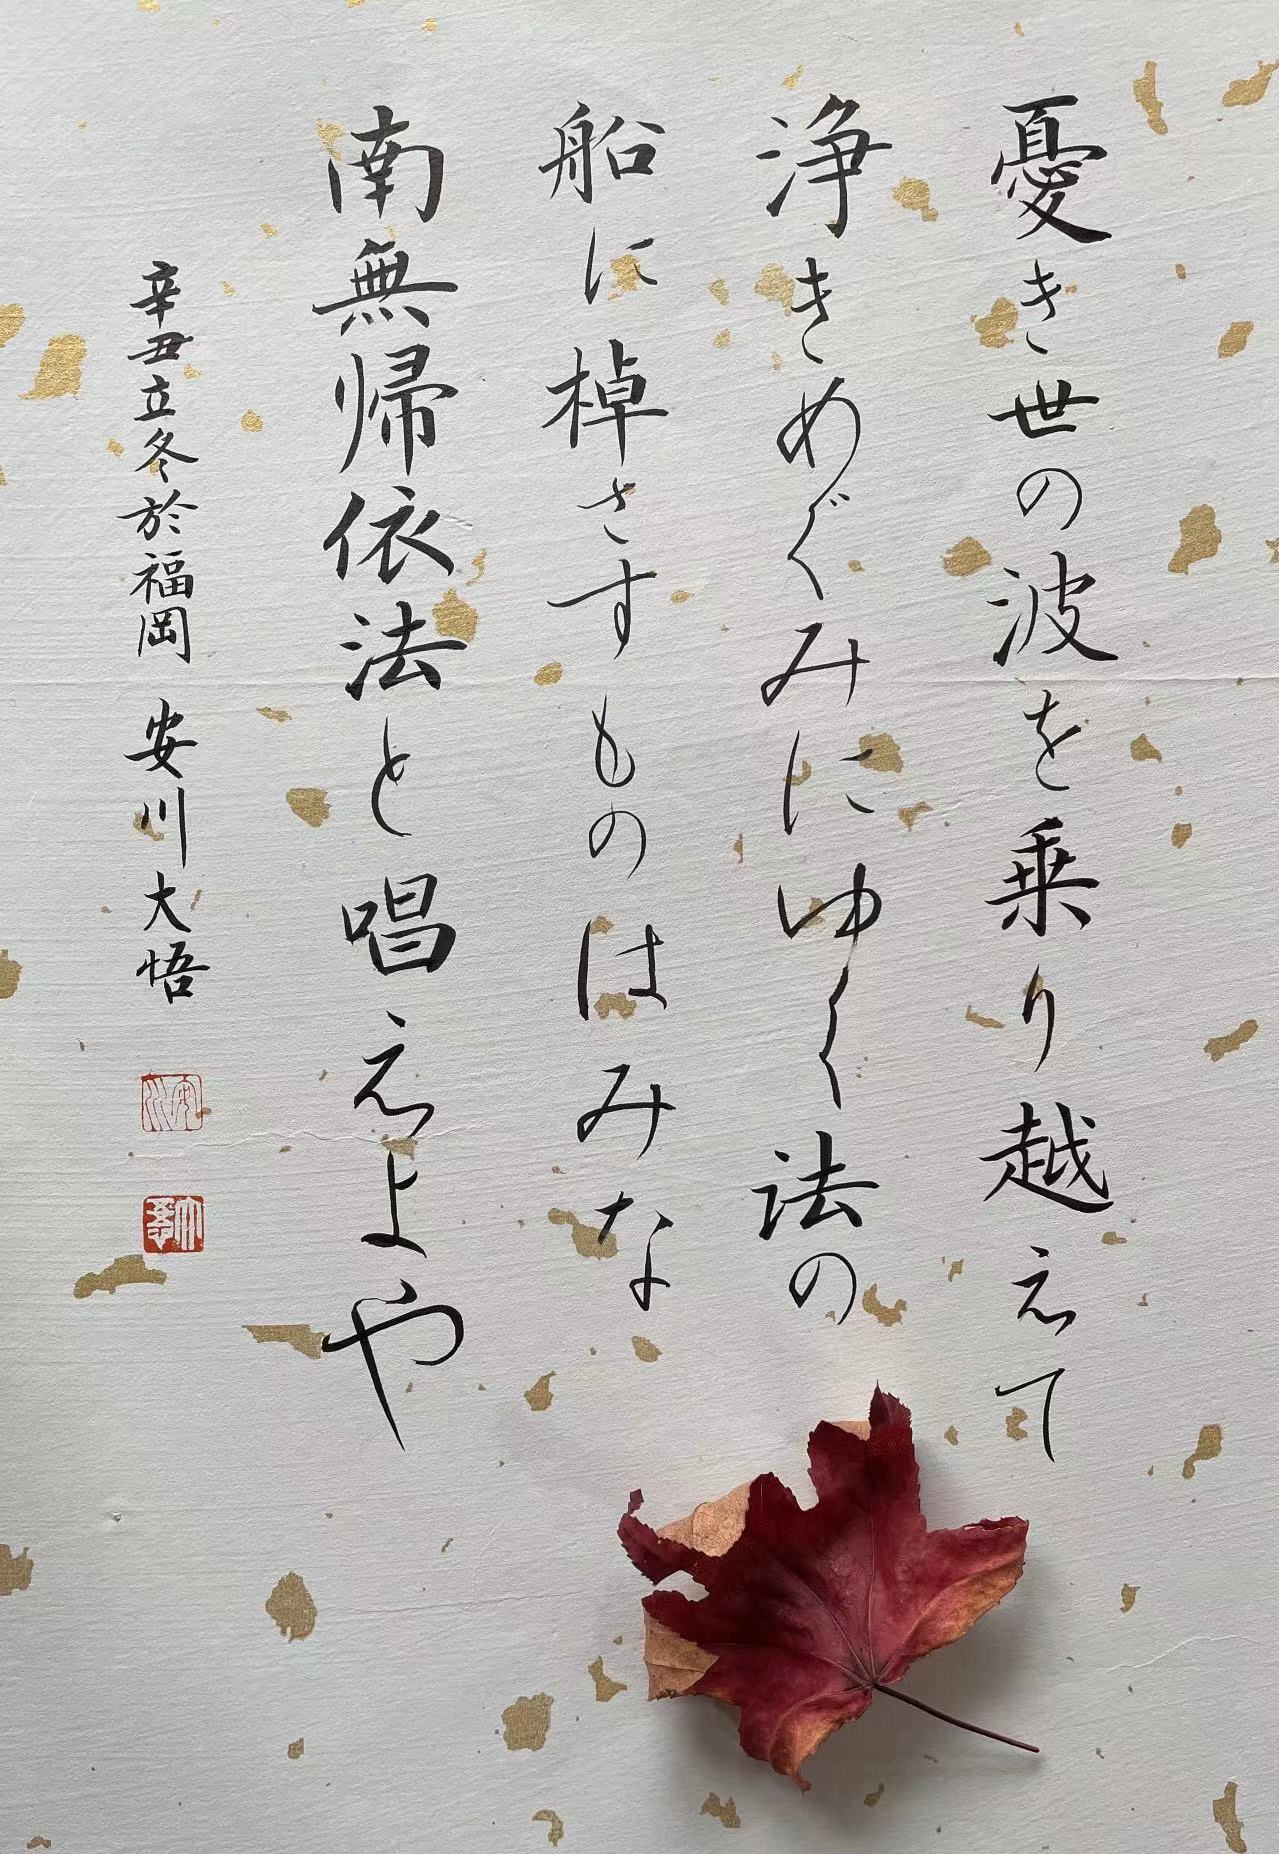 憂き世の波を乗り越えて
浄きめぐみにゆく法の
船に棹さすものはみな
南無帰依法と唱えよや
辛丑立冬於福岡 安川大悟
安川
大悟